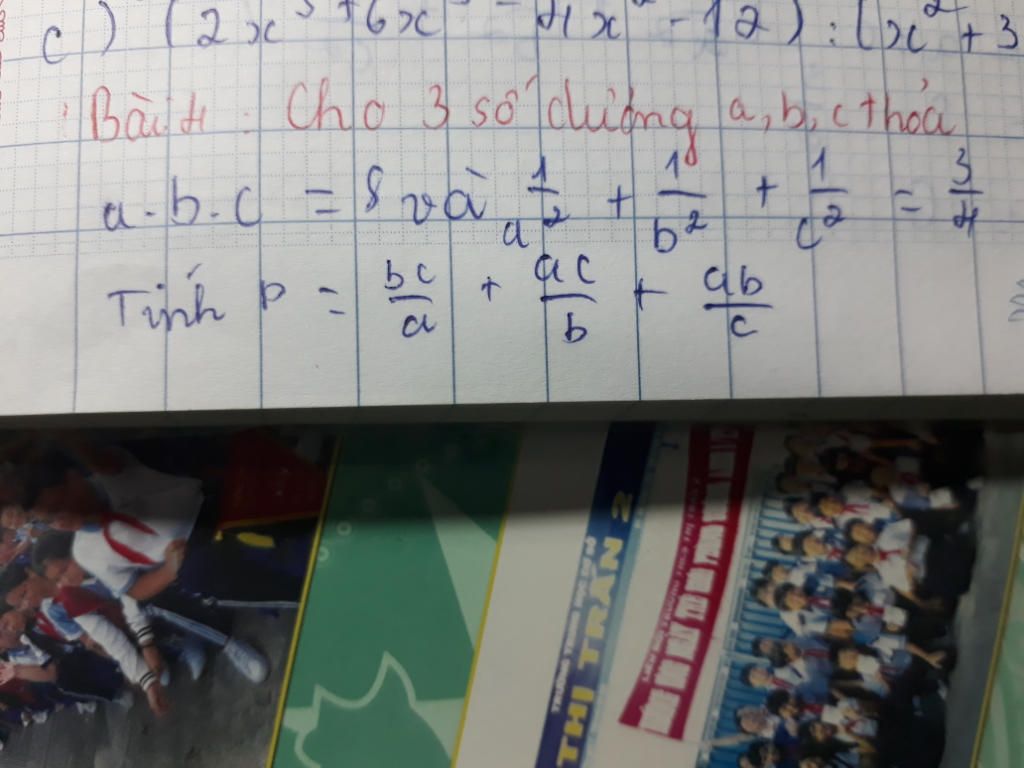 c) (2x³ + 6x - 4x² - 12) : (x² + 3
Bài 4: Cho 3 số dương a, b, c thỏa
a.b.c = 8 và 1/a² + 1/b² + 1/c² = 3/4
Tính P = bc/a + ac/b + ab/c
THỊ TRẤN 2